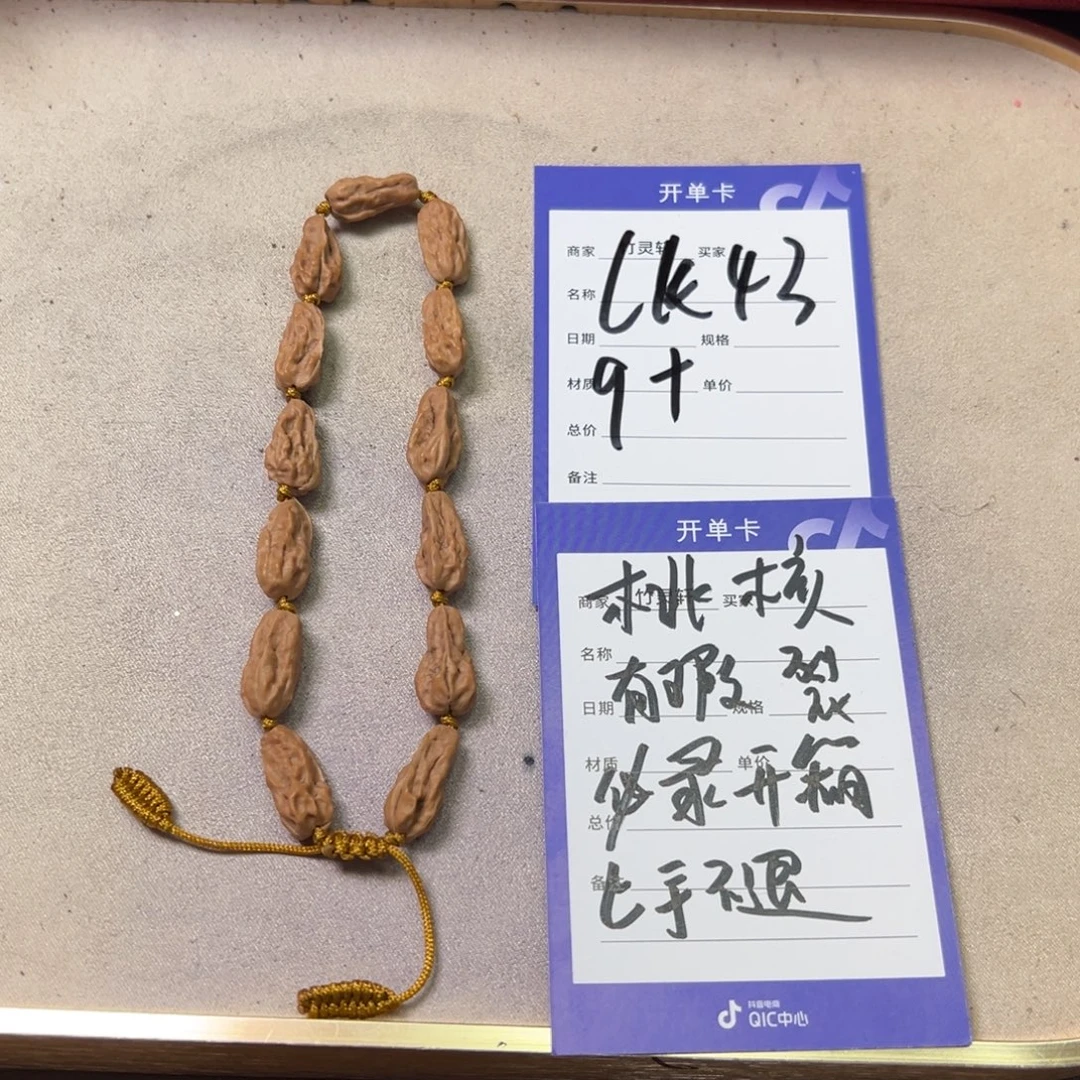 开单卡
商家 竹灵轩 买家
LK43
名称
日期 规格
9+
材质 单价
总价
备注
开单卡
桃核
商家 竹灵轩 买家
名称
有瑕裂
日期 规格
材质 单价
必录开箱
总价
上手不退
备注
抖音电商
QIC中心